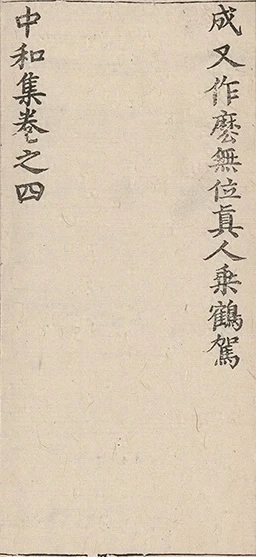 成又作麽無位眞人乗鶴駕
中和集卷之四